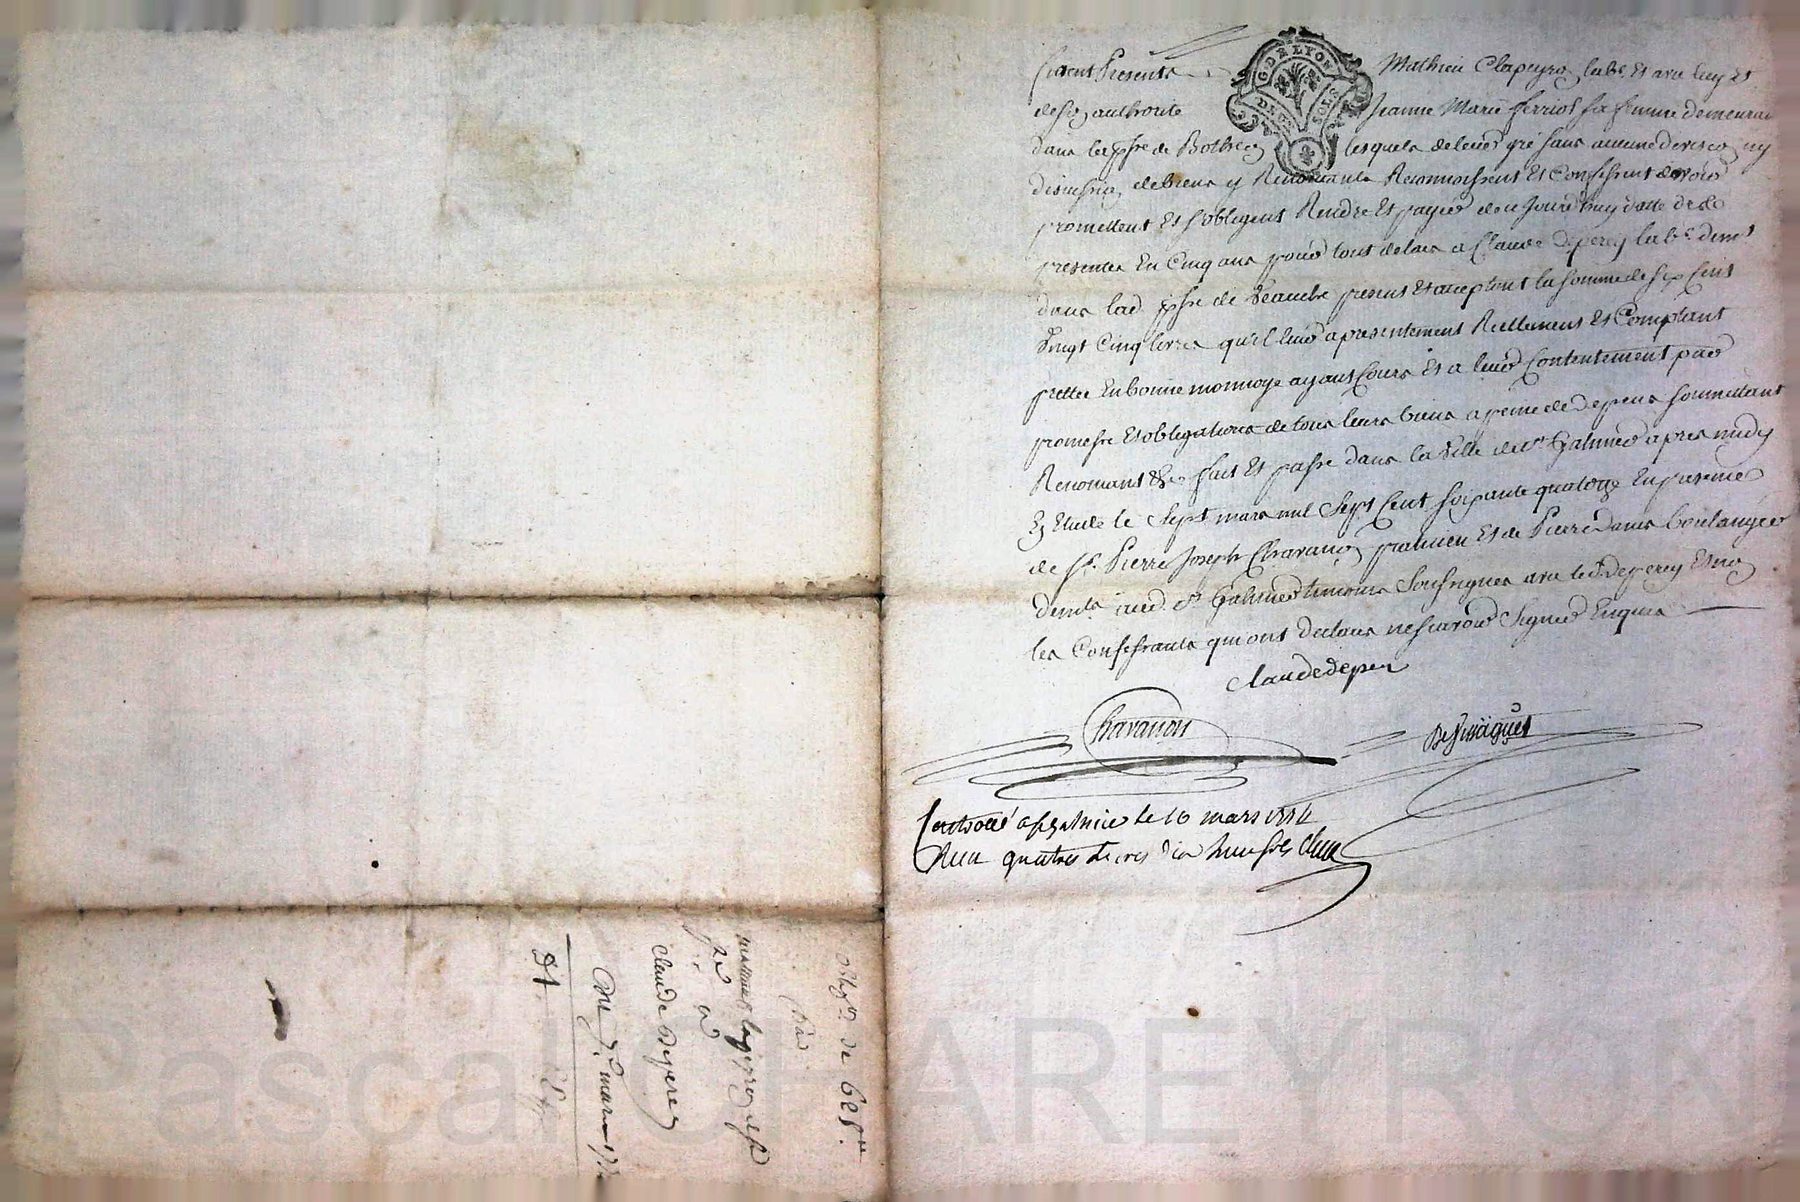 furent Presents Mathieu Clapeyron lab.r Et avec luy Et
de son authorité Jeanne Marie ferriol sa femme demeurant
dans la psse de Botheon lesquels de leur gré sans aucune division ny
discussion de biens y Renonçants Reconnoissent Et Confessent devoir
promettent Et s'obligent Rendre Et payer de ce Jourd'huy datte des
presentes En Cinq ans pour tout delais a Claude deperey lab.r dem.t
dans lad psse de Veauche present Et acceptant la somme de six Cent
vingt Cinq livres qu'il leur a presentement Reellement Et Comptant
prettée En bonne monnoye ayant Cours Et a leur Contentement par
promesse Et obligations de tous leurs biens a peine de depens soumettant
Renonçant &c fait Et passé dans la Ville de St Galmier apres midy
En Etude le Sept mars mil Sept Cent soixante quatorze En presence
de sr Pierre Joseph Chavanon praticien Et de Pierre boulanger
demts aud. St Galmier temoins Soussignés avec led. deperey Et non
les Confessants qui ont declaré ne sçavoir Signer Enquis
Claude deperey
Chavanon
Contrôlé a St Galmier le 16 mars 1774
Reçu quatre livres dix huit sols
G. DE LYON
DEUX SOLS
oblig.on de 625.tt
Par
mathieu Clapeyron
a
Claude Deperey
Du 7.e mars 177
Pascal CHAREYRON